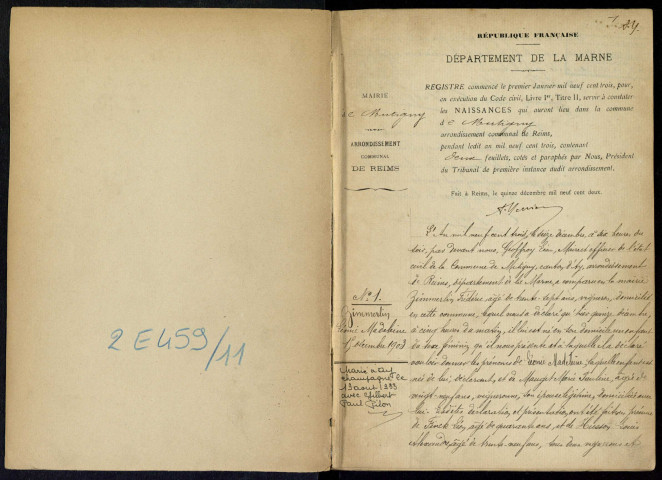 2 E 459/11
RÉPUBLIQUE FRANÇAISE
DÉPARTEMENT DE LA MARNE
MAIRIE
de Mutigny
ARRONDISSEMENT
COMMUNAL
DE REIMS
REGISTRE commencé le premier Janvier mil neuf cent trois, pour,
en exécution du Code civil, Livre Ier, Titre II, servir à constater
les NAISSANCES qui auront lieu dans la commune
de Mutigny
arrondissement communal de Reims,
pendant ledit an mil neuf cent trois, contenant
feuillets, cotés et paraphés par Nous, Président
du Tribunal de première instance audit arrondissement.
Fait à Reims, le quinze décembre mil neuf cent deux.
No 1.
Zimmerlin
Léonie Madeleine
15 décembre 1903
Marié à Ay
Champagne le
13 août 1933
avec Gilbert
Paul Pilon
L'An mil neuf cent trois, le seize décembre, à dix heures du
soir, par devant nous, Geoffroy Léon, Maire officier de l'état
civil de la Commune de Mutigny, canton d'Ay, arrondissement
de Reims, département de la Marne, a comparu en la mairie
Zimmerlin Frédéric âgé de trente sept ans, vigneron, domicilié
en cette commune, lequel nous a déclaré qu'hier quinze décembre,
à cinq heures du matin, il lui est né en son domicile un enfant
du sexe féminin qu'il nous présente et à laquelle il a déclaré
vouloir donner les prénoms de Léonie Madeleine, laquelle enfant est
née de lui, déclarant, et de Marie Pauline, âgée de
vingt neuf ans, vigneronne, son épouse légitime, domiciliée avec
lui. Lesdites déclaration et présentation ont été faites en présence
de Léon, âgé de quarante ans, et de Husson Louis
âgé de trente neuf ans, tous deux vignerons et